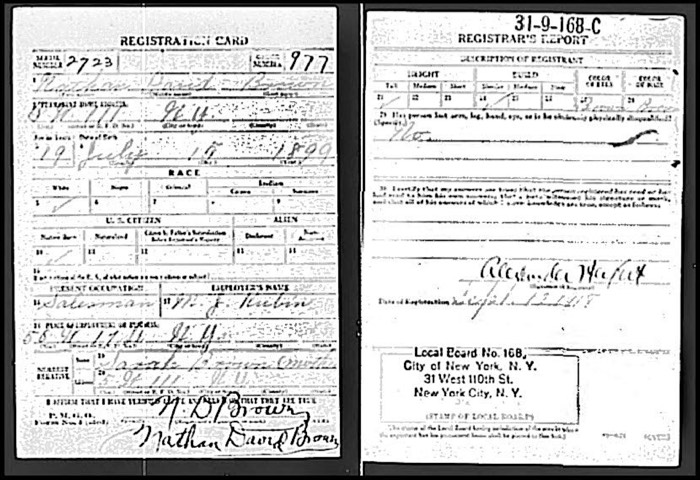 REGISTRATION CARD
SERIAL NUMBER 2723 ORDER NUMBER 977
Nathan David Brown
PERMANENT HOME ADDRESS:
5 W 111 N.Y.
Age in Years Date of Birth
19 July 15 1899
RACE
White Negro Oriental Indian
Citizen
5 6 7 8 9
U. S. CITIZEN ALIEN
Native Born Naturalized Citizen by Father's Naturalization Before Registrant's Majority Declarant Non-declarant
10 11 12 13 14
15
PRESENT OCCUPATION EMPLOYER'S NAME
16 Salesman 17 J. Rubin
18 PLACE OF EMPLOYMENT OR BUSINESS:
W 17 N.Y.
NEAREST RELATIVE Name 19 Sarah Brown (Mother)
Address 20 5 W 111 N.Y.
I AFFIRM THAT I HAVE VERIFIED ABOVE ANSWERS AND THAT THEY ARE TRUE
P. M. G. O.
Form No. 1 N D Brown
Nathan David Brown
31-9-168-C
REGISTRAR'S REPORT
DESCRIPTION OF REGISTRANT
HEIGHT BUILD COLOR OF EYES COLOR OF HAIR
Tall Medium Short Slender Medium Stout
21 22 23 24 25 26 27 Brown 28 Brown
29 Has person lost arm, leg, hand, eye, or is he obviously physically disqualified?
(Specify.) No
30 I certify that my answers are true; that the person registered has read or has had read to him his own answers; that I have witnessed his signature or mark, and that all of his answers of which I have knowledge are true, except as follows:
Date of Registration Sept. 12 1918
Local Board No. 168,
City of New York, N. Y.
31 West 110th St.
New York City, N. Y.
(STAMP OF LOCAL BOARD)
(The stamp of the Local Board having jurisdiction of the area in which the registrant has his permanent home shall be placed in this box.)